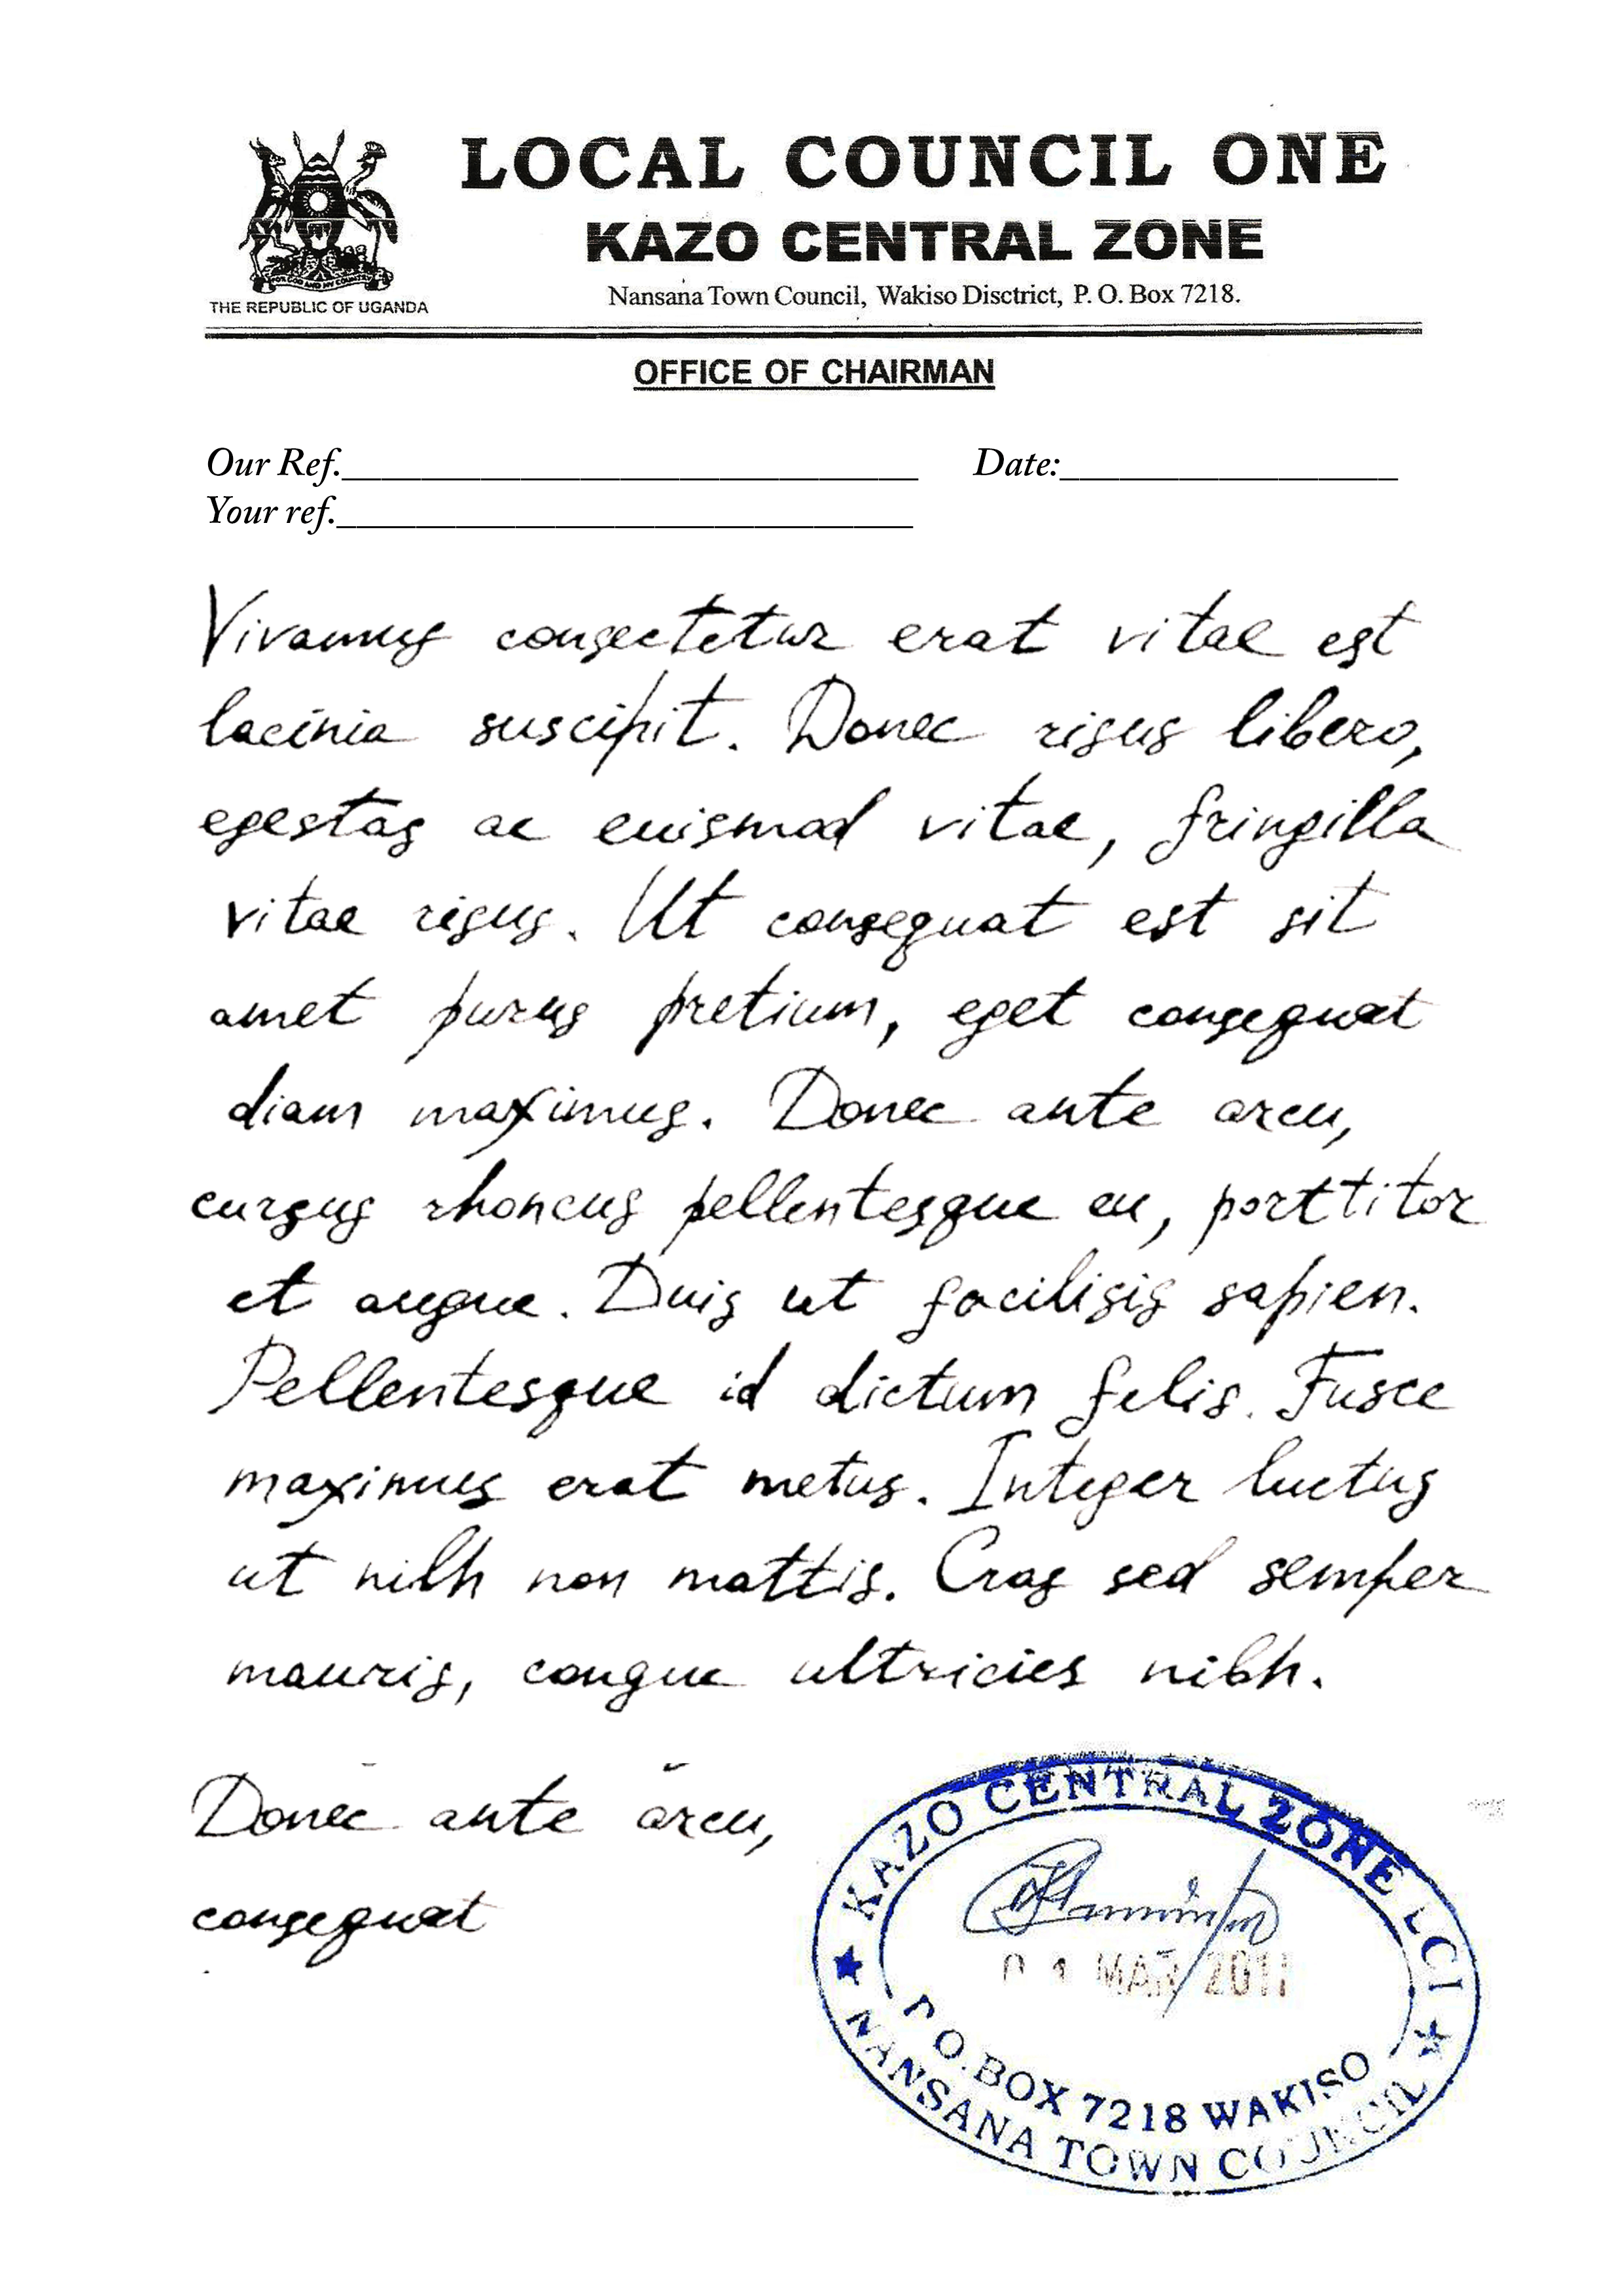 LOCAL COUNCIL ONE
KAZO CENTRAL ZONE
Nansana Town Council, Wakiso Disctrict, P. O. Box 7218.
THE REPUBLIC OF UGANDA
OFFICE OF CHAIRMAN
Our Ref.____________________________ Date:________________
Your ref.____________________________
Vivamus consectetur erat vitae est
lacinia suscipit. Donec risus libero,
egestas ac euismod vitae, fringilla
vitae risus. Ut consequat est sit
amet purus pretium, eget consequat
diam maximus. Donec ante arcu,
cursus rhoncus pellentesque eu, porttitor
et augue. Duis ut facilisis sapien.
Pellentesque id dictum felis. Fusce
maximus erat metus. Integer luctus
ut nibh non mattis. Cras sed semper
mauris, congue ultricies nibh.
Donec ante arcu,
consequat
KAZO CENTRAL ZONE LCI
MAR
P.O.BOX 7218 WAKISO
NANSANA TOWN COUNCIL